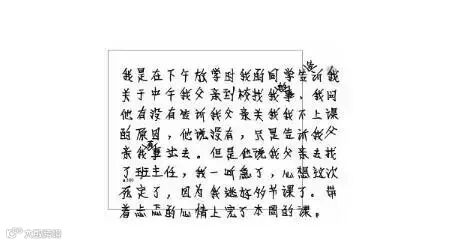 我是在下午放学时我的同学告诉我
关于中午我父亲到校找我事。我问
他有没有告诉我父亲关我我不上课
的原因,他说没有,只是告诉我父
亲我出去。但是他说我父亲去找
了班主任,我一听急了,心想这次
死定了,因为我逃好多节课了。带
着忐忑的心情上完了本周的课。